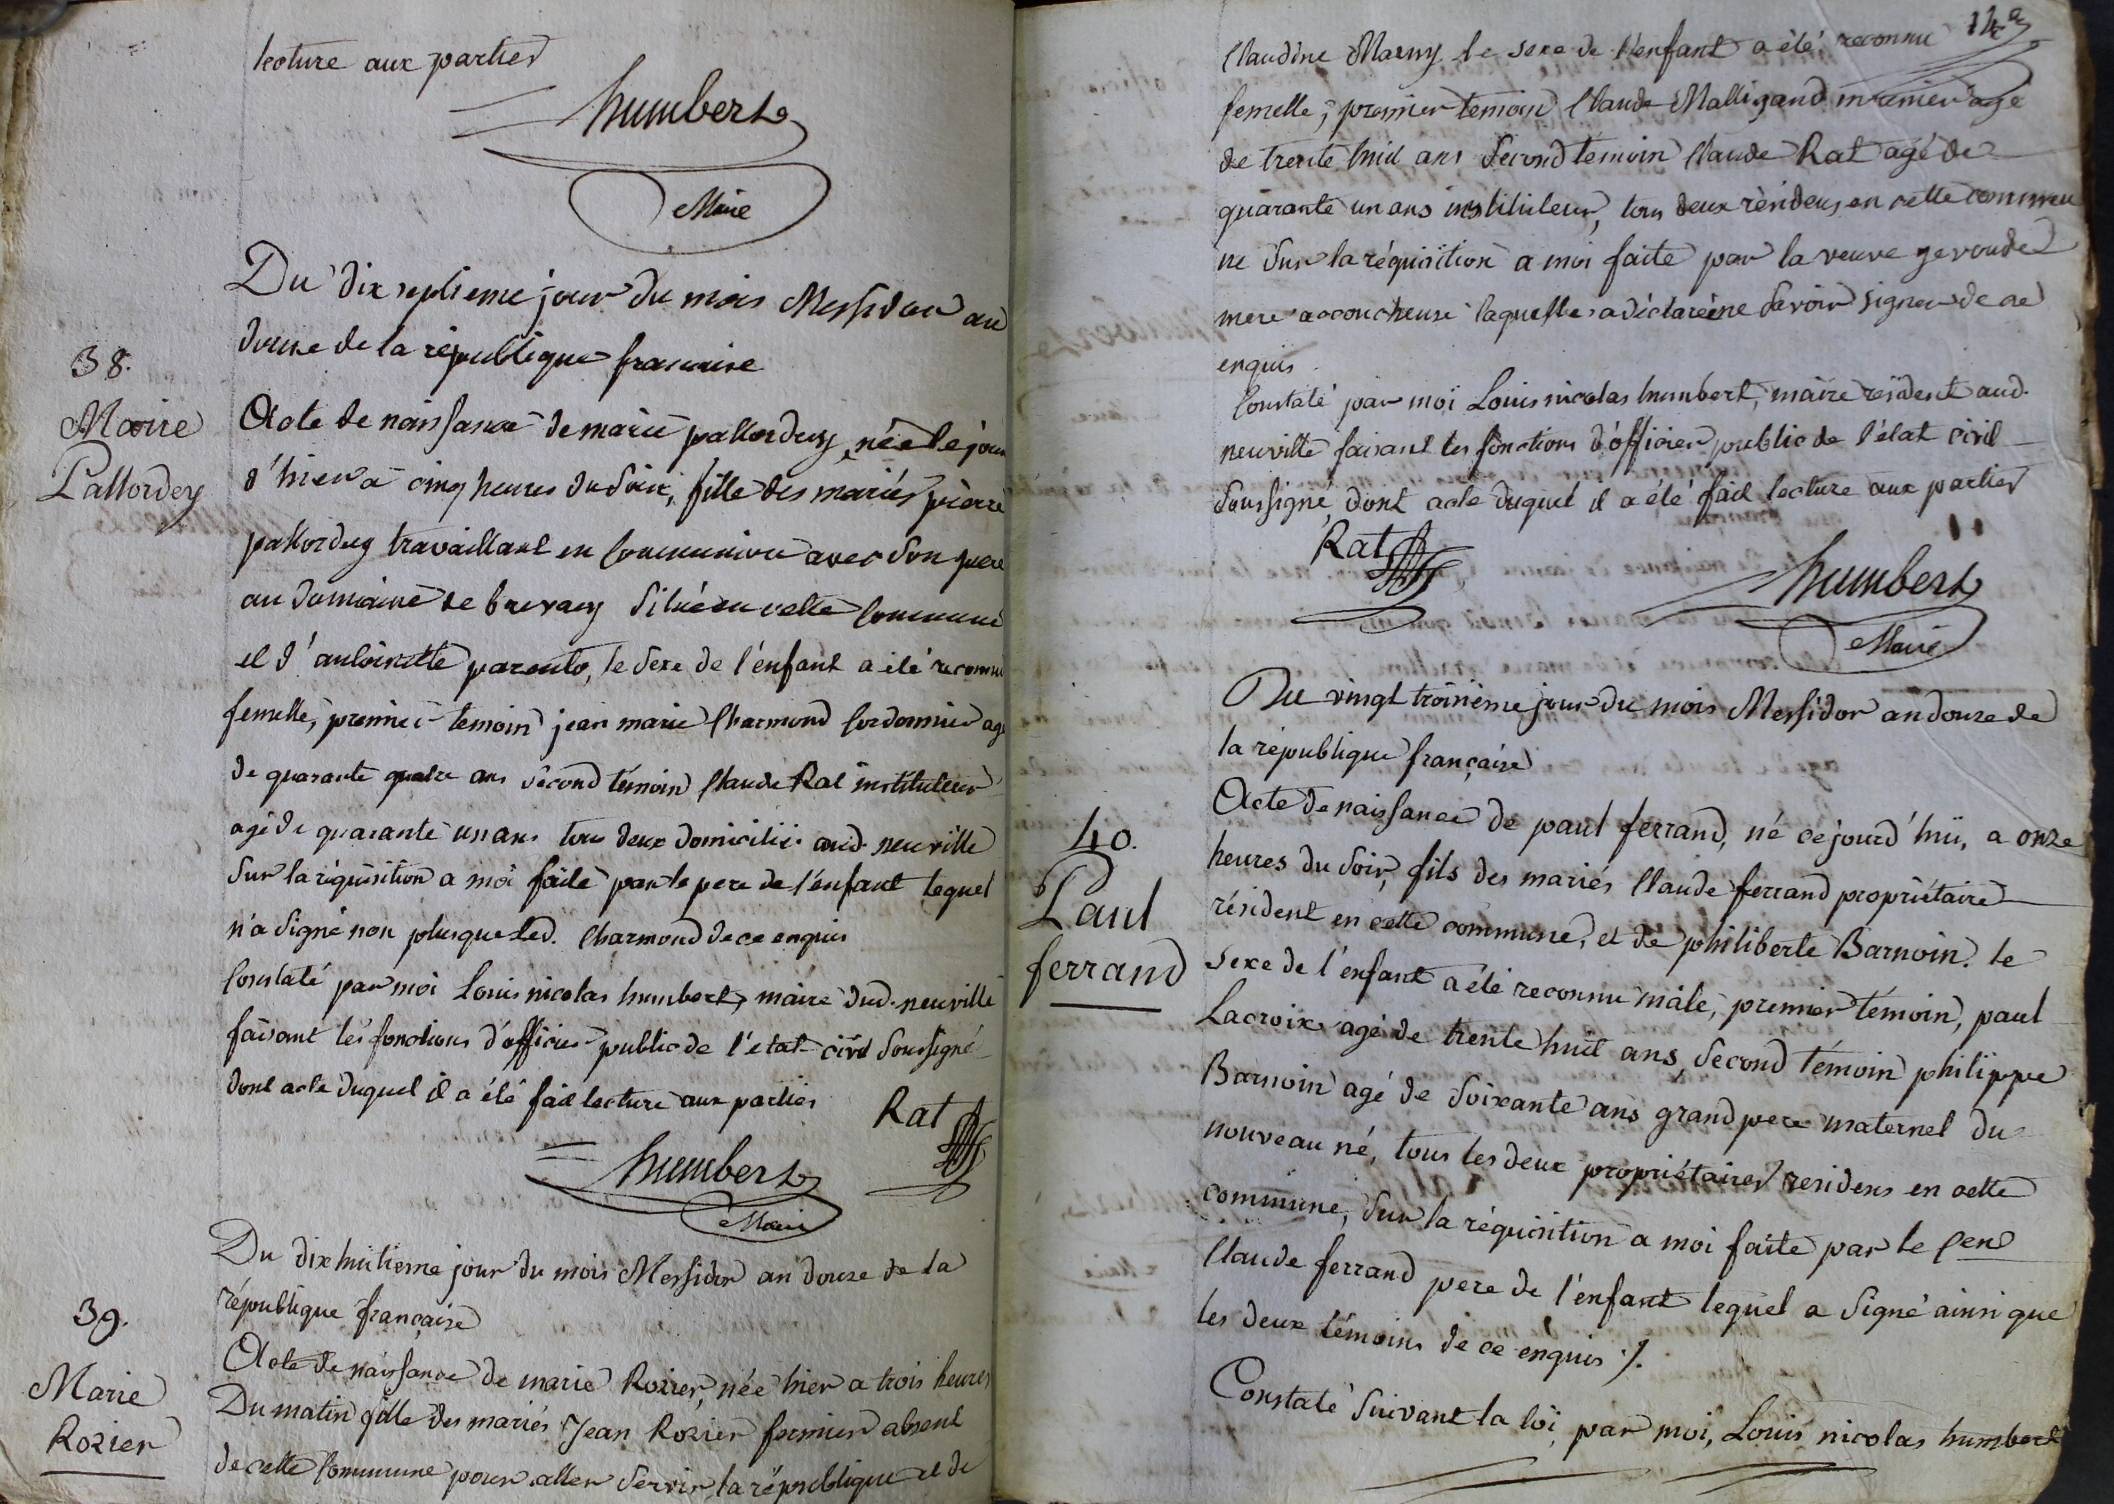 lecture aux parties
humbert
Maire
Du dix septieme jour du mois Messidor an
douze de la république francaise
38.
Marie
Pallordey
Acte de naissance de marie pallordey, née le jour
d'hier a cinq heures du soir, fille des mariés pierre
pallordey travaillant en communion avec son pere
au domaine de brevaey situé en cette commune
et d'antoinette parento, le sexe de l'enfant a été reconnu
femelle, premier temoin jean marie Charmond Cordonnier agé
de quarante quatre ans second témoin Claude Rat instituteur
agé de quarante un ans tous deux domiciliés aud. neuville
sur la réquisition a moi faite par le pere de l'enfant lequel
n'a signé non plus que led. Charmond de ce enquis
Constaté par moi Louis nicolas humbert, maire dud. neuville
faisant les fonctions d'officier public de l'etat civil soussigné
dont acte duquel il a été fait lecture aux parties
Rat
humbert
Maire
Du dix huitieme jour du mois Messidor an douze de la
république française
39.
Marie
Rozier
Acte de naissance de marie Rozier, née hier a trois heures
Du matin fille des mariés Jean Rozier fermier absent
de cette Commune pour aller servir la république et de
Claudine Marny le sexe de l'enfant a été reconnu
femelle, premier temoin Claude Malligand agé
de trente huit ans second témoin Claude Rat agé de
quarante un ans instituteur, tous deux résidens en cette commu
ne sur la réquisition a moi faite par la veuve gevoudet
mere accoucheuse laquelle a déclaré ne savoir signer de ce
enquis
Constaté par moi Louis nicolas humbert, maire résident aud.
neuville faisant les fonctions d'officier public de l'état civil
soussigné, dont acte duquel il a été fait lecture aux parties
Rat
humbert
Maire
Du vingt troisième jour du mois Messidor an douze de
la république française
40.
Paul
ferrand
Acte de naissance de paul ferrand, né ce jourd'hui, a onze
heures du soir, fils des mariés Claude ferrand propriétaire
résident en cette commune, et de philiberte Barnoin. le
sexe de l'enfant a été reconnu mâle, premier témoin, paul
Lacroix agé de trente huit ans, second témoin philippe
Barnoin agé de soixante ans grand pere maternel du
nouveau né, tous les deux propriétaires residens en cette
commune, sur la réquisition a moi faite par le Cen
Claude ferrand pere de l'enfant lequel a signé ainsi que
les deux témoins de ce enquis ./.
Constaté suivant la loi par moi, Louis nicolas humbert